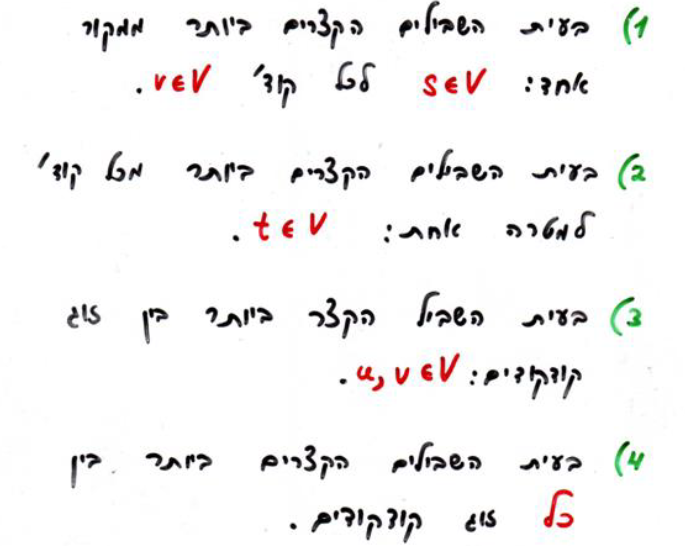 1) בעית השבילים הקצרים ביותר ממקור
אחד: s ∈ V לכל קוד' v ∈ V.
2) בעית השבילים הקצרים ביותר מכל קוד'
למטרה אחת: t ∈ V.
3) בעית השביל הקצר ביותר בין זוג
קודקודים: u, v ∈ V.
4) בעית השבילים הקצרים ביותר בין
כל זוג קודקודים.